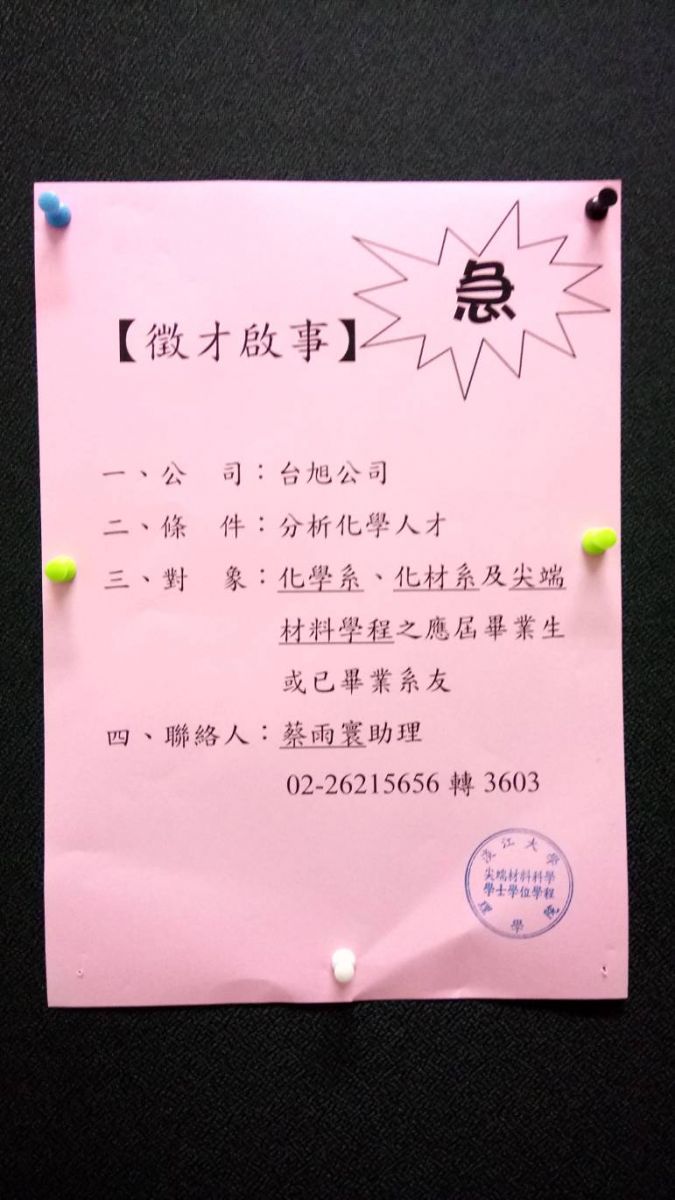 急
【徵才啟事】
一、公　司：台旭公司
二、條　件：分析化學人才
三、對　象：化學系、化材系及尖端
材料學程之應屆畢業生
或已畢業系友
四、聯絡人：蔡雨寰助理
02-26215656 轉 3603
淡江大學
尖端材料科學
學士學位學程
理學院